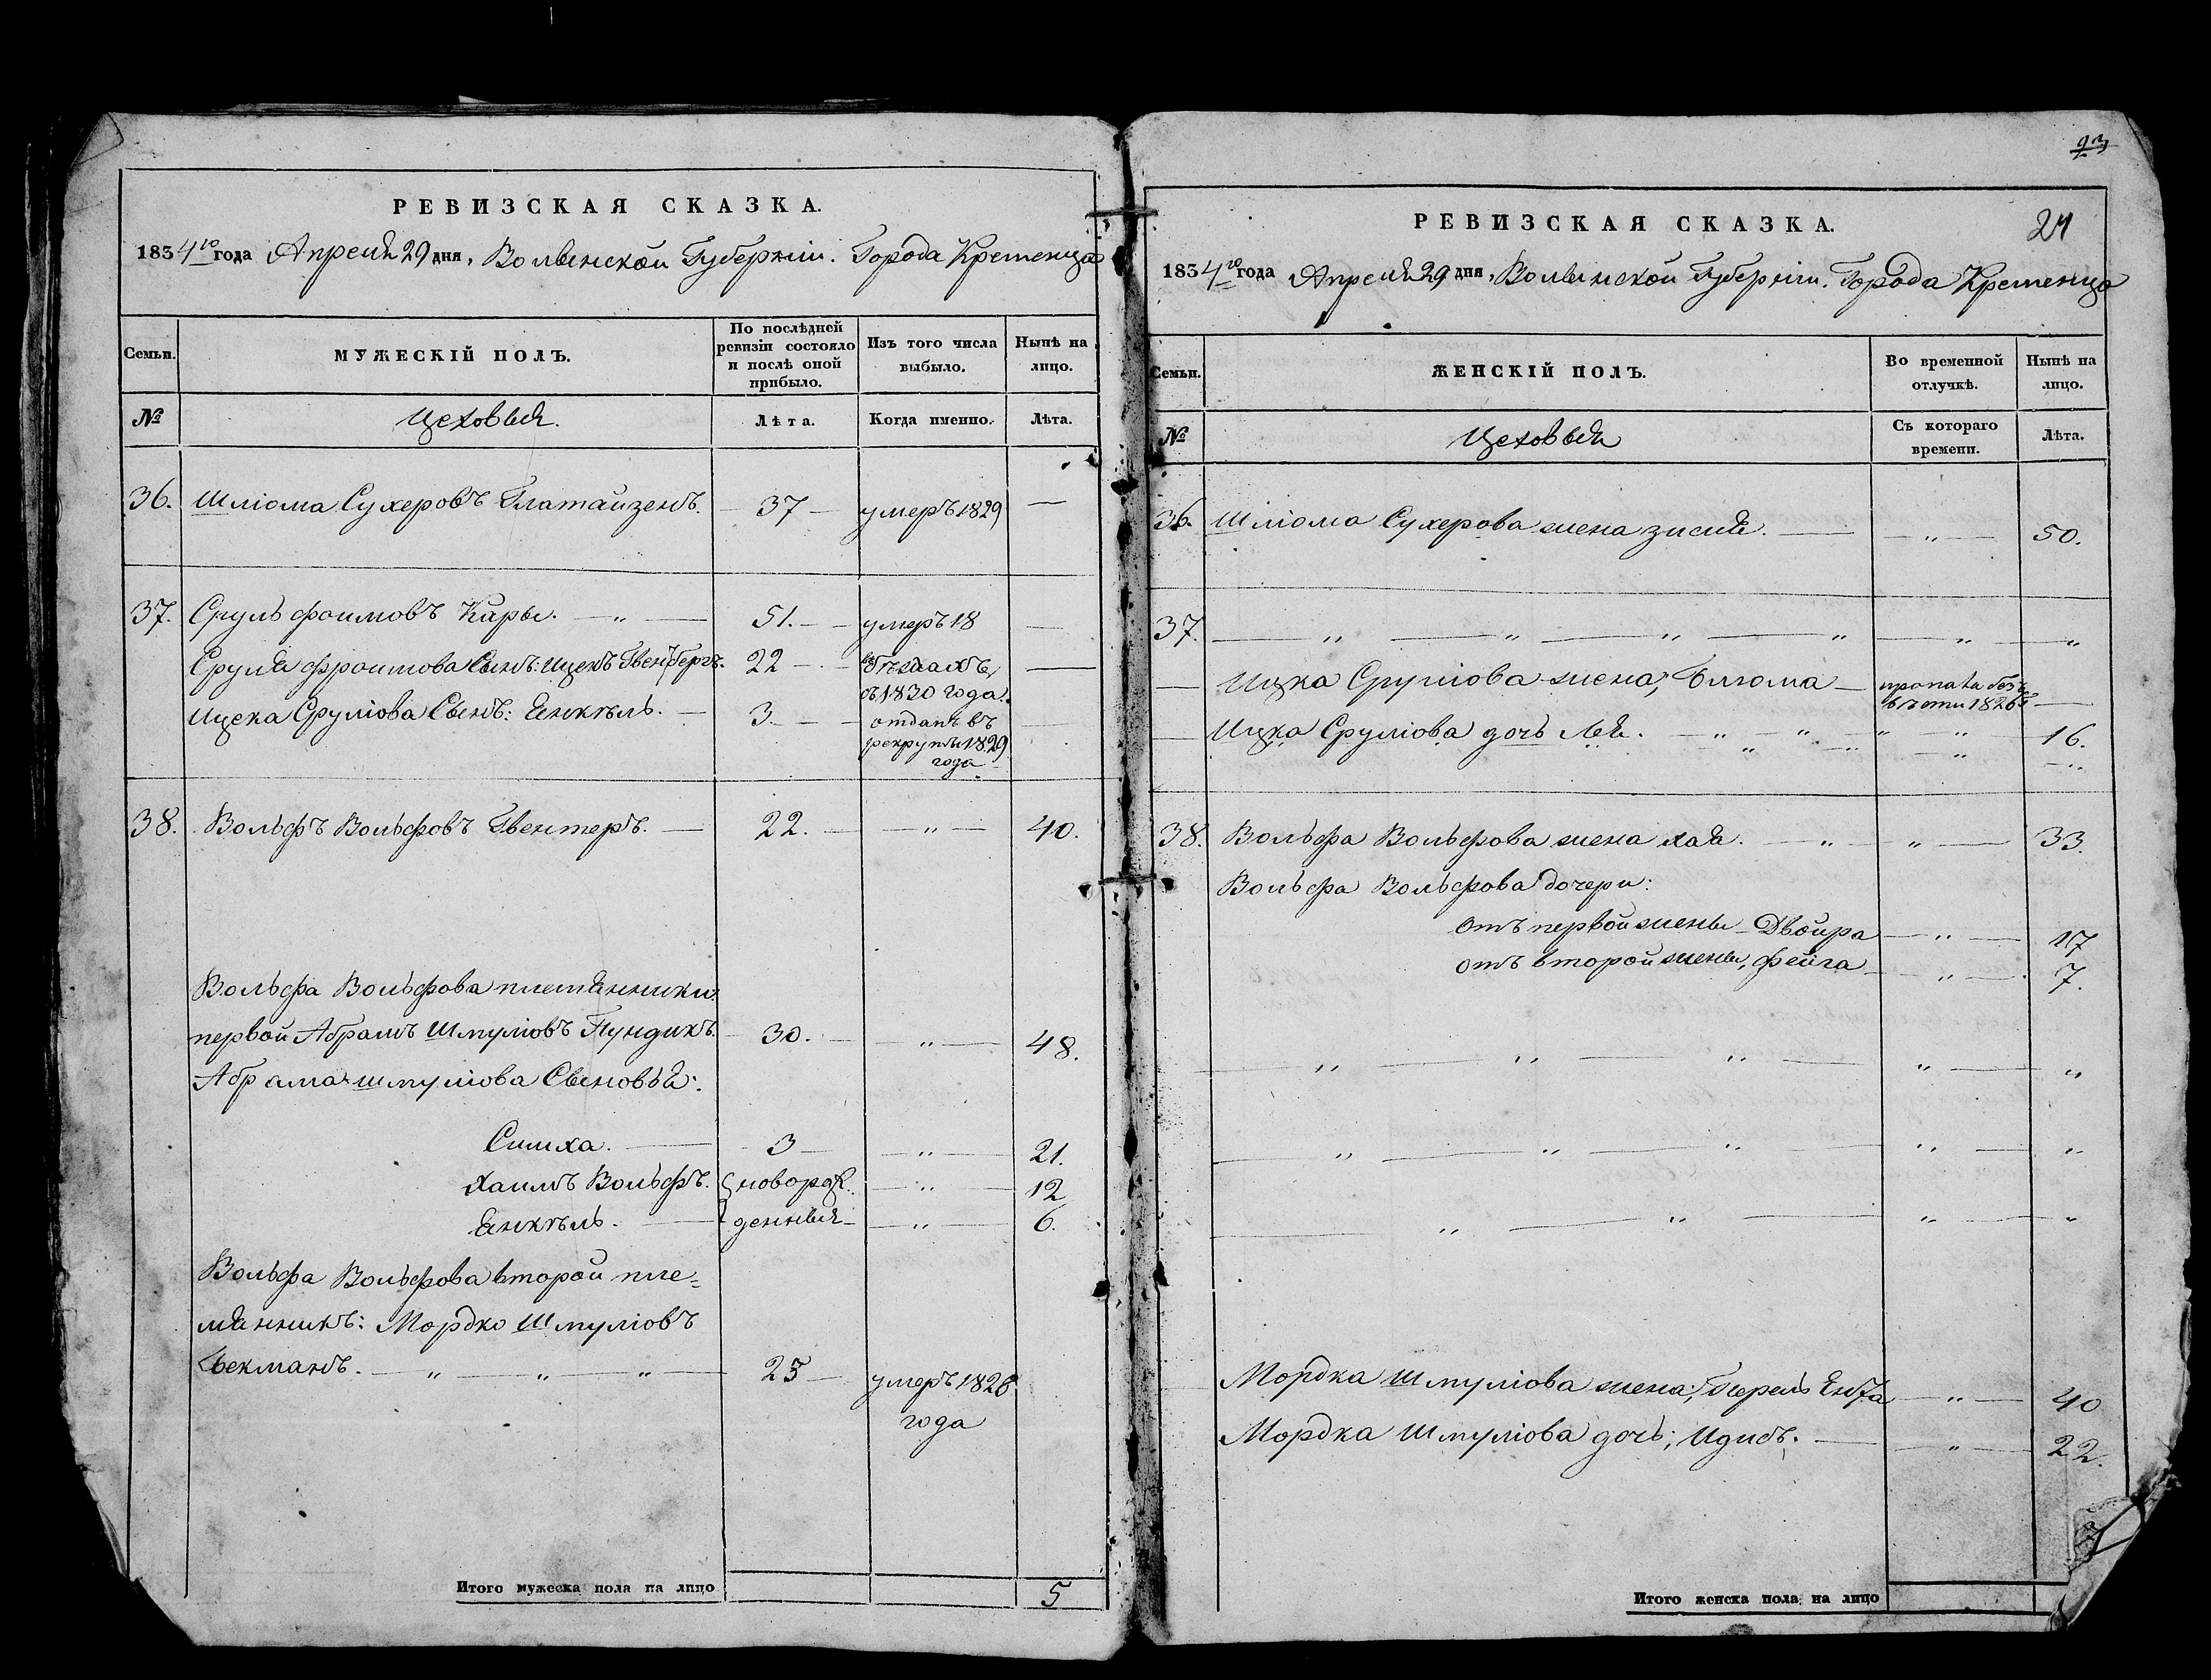 РЕВИЗСКАЯ СКАЗКА.
1834го года Апреля 29 дня, Волынской Губерніи. Города Кременца
Семьи. МУЖЕСКІЙ ПОЛЪ. По послѣдней ревизіи состояло и послѣ оной прибыло. Изъ того числа выбыло. Нынѣ на лицо.
№ Цеховыя. Лѣта. Когда именно. Лѣта.
36. Шліома Сухеровъ 37 умеръ 1829 —
37. Сруль Фроимовъ Кары. 51. умеръ 18 —
Сруля Фроимова Сынъ: Ицекъ 22 — въ бѣгахъ —
съ 1830 года.
Ицека Сруліова Сынъ: Янкѣль. 3. отданъ въ —
рекруты 1829
года
38. Вольфъ Вольфовъ 22. „ 40.
Вольфа Вольфова племянники:
первой Абрамъ Шмуліовъ 30. „ 48.
Абрама Шмуліова Сыновья:
Симха. 3 „ 21.
Хаимъ Вольфъ. новорож „ 12
Янкѣль. денныя „ 6.
Вольфа Вольфова второй пле=
мянникъ: Мордко Шмуліовъ
25 умеръ 1826
года
Итого мужеска пола на лицо 5
93
РЕВИЗСКАЯ СКАЗКА. 24
1834го года Апреля 29 дня, Волынской Губерніи. Города Кременца
Семьи. ЖЕНСКІЙ ПОЛЪ. Во временной отлучкѣ. Нынѣ на лицо.
№ Цеховыя Съ котораго времени. Лѣта.
36. Шліома Сухерова жена Зисля. „ 50.
37. „ „ „ „ „ „
Ицка Сруліова жена, Блюма — пропала безъ
вѣсти 1826г —
Ицка Сруліова дочь Лея. „ „ „ „ 16.
38. Вольфа Вольфова жена Хая. „ „ 33.
Вольфа Вольфова дочери:
отъ первой жены Двойра „ 17
отъ второй жены, Фейга „ 7.
„ „ „ „ „
„ „ „ „ „
„ „ „ „
Мордка Шмуліова жена, Ента „ 40
Мордка Шмуліова дочь; Идись. „ 22.
Итого женска пола на лицо